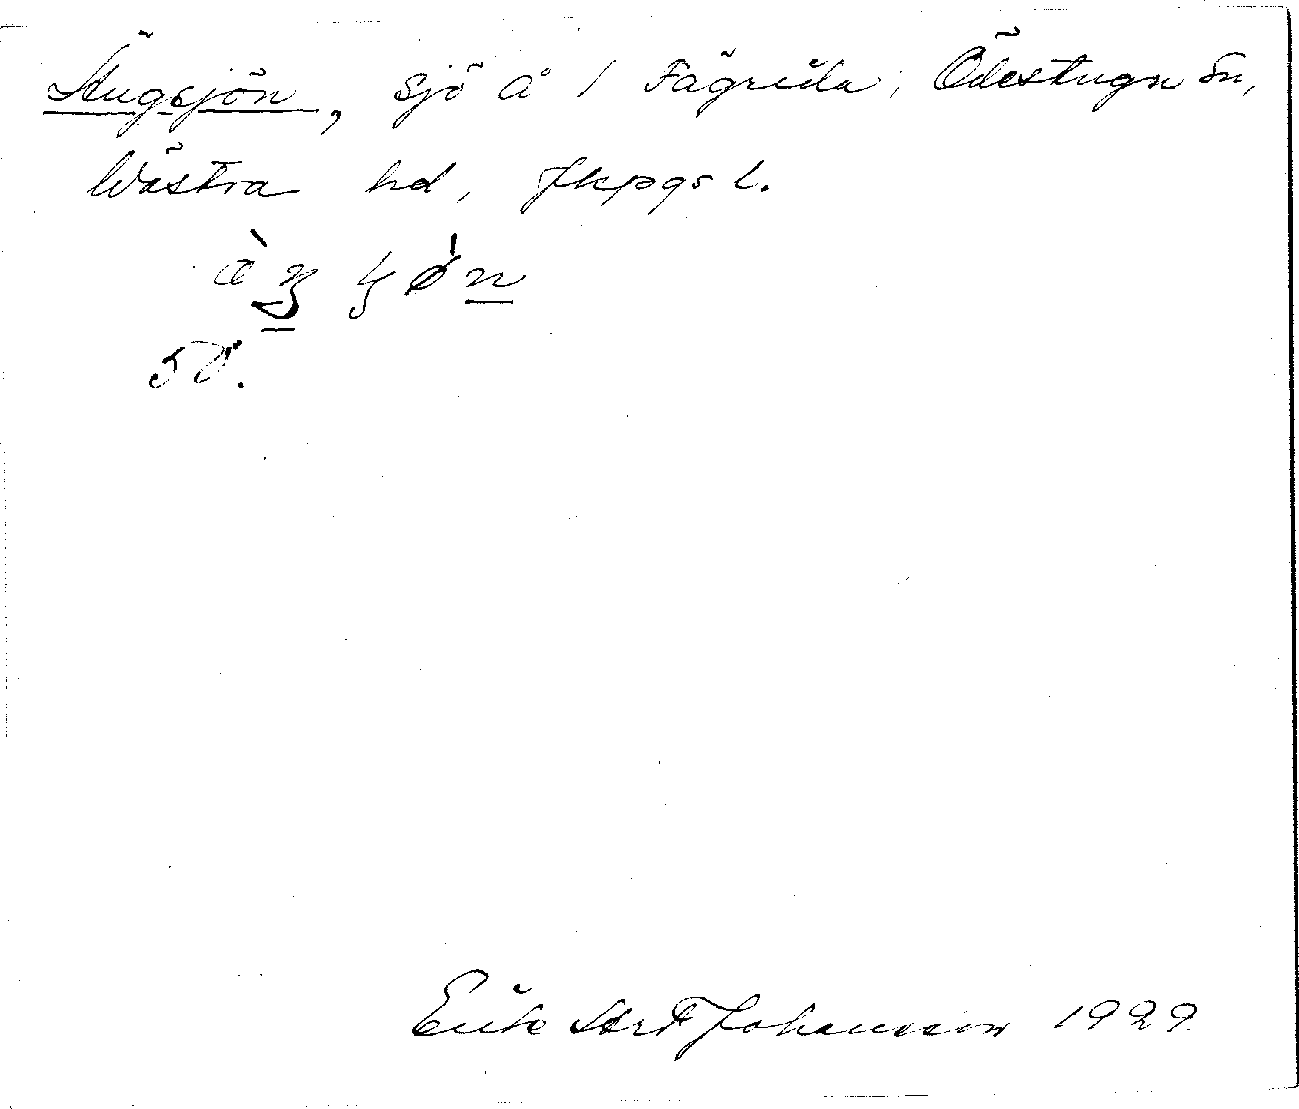 Ängsjön, sjö å 1 Fågreda, Ödestugu sn,
Västra hd, Jkpgs l.
50.
Erik Art Johansson 1929